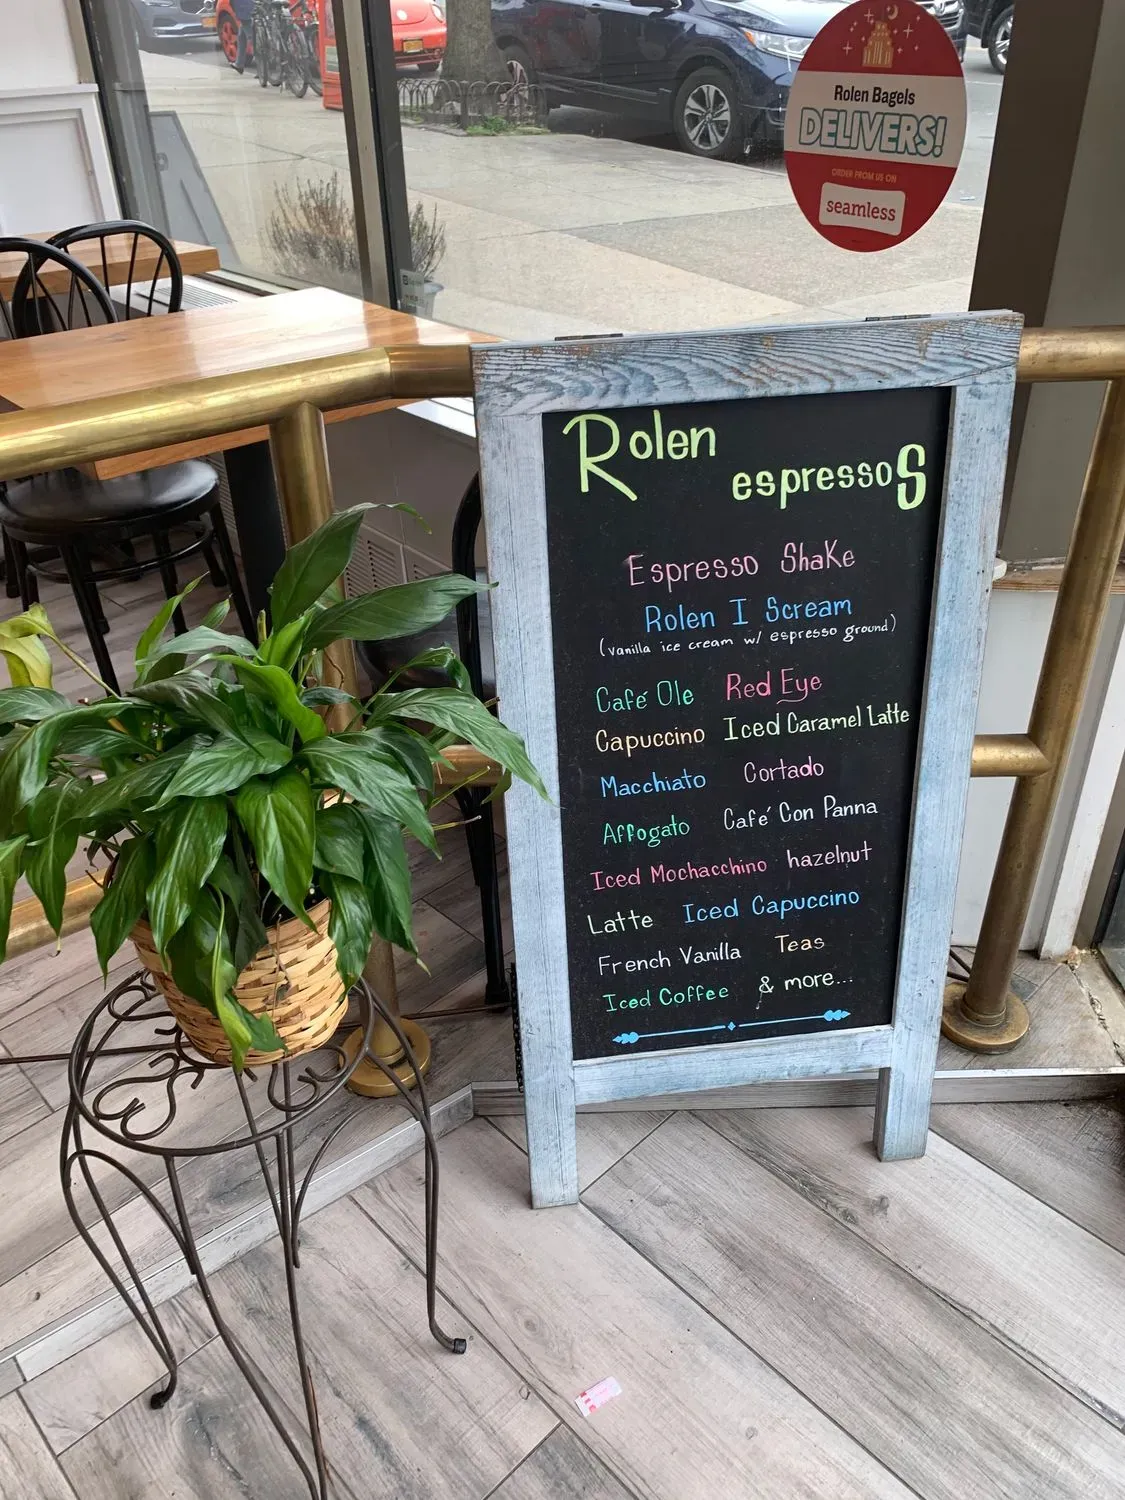 Rolen Bagels
DELIVERS!
ORDER FROM US ON
seamless
Rolen
espressoS
Espresso Shake
Rolen I Scream
(vanilla ice cream w/ espresso ground)
Café Ole Red Eye
Capuccino Iced Caramel Latte
Macchiato Cortado
Affogato Café Con Panna
Iced Mochacchino hazelnut
Latte Iced Capuccino
French Vanilla Teas
Iced Coffee & more...